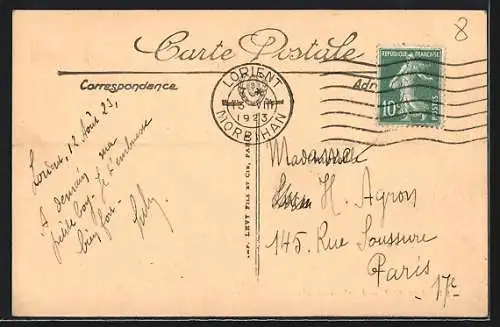 8
Carte Postale
RÉPUBLIQUE FRANÇAISE
10c
POSTES
LORIENT
1923
MORBIHAN
Correspondance
Adr
Lorient, 12 Août 23,
A demain, ma
petite Loy. Je t'embrasse
bien fort.
Madame
H. Agron
145, Rue Saussure
Paris 17e
IMP. LEVY FILS ET CIE, PARIS